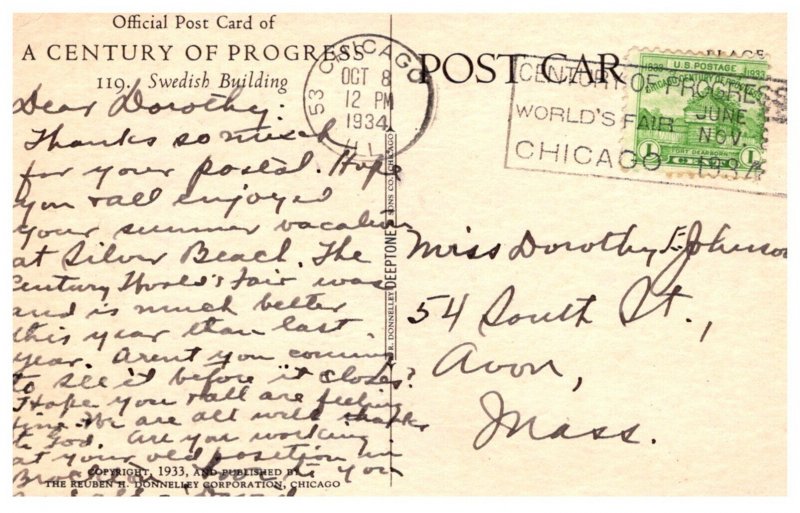 Official Post Card of
A CENTURY OF PROGRESS
119. Swedish Building
CHICAGO
53
OCT 8
12 PM
1934
ILL.
POST CAR
PLACE
CENTURY OF PROGRESS
WORLD'S FAIR JUNE
NOV.
CHICAGO 1934
U.S. POSTAGE
1833 1933
CHICAGO CENTURY OF
FORT DEARBORN
1 1
Dear Dorothy:
Thanks so much
for your postal. Hope
you & all enjoyed
your summer vacation
at Silver Beach. The
Century World's Fair was
and is much better
this year than last
year. Arent you coming
to see it before it closes?
Hope you & all are feeling
fine. We are all well thanks
to God. Are you working
at your old position in
you
Miss Dorothy E. Johnson
54 South St.,
Avon,
Mass.
R. DONNELLEY DEEPTONE SONS CO., CHICAGO
COPYRIGHT, 1933, AND PUBLISHED BY
THE REUBEN H. DONNELLEY CORPORATION, CHICAGO